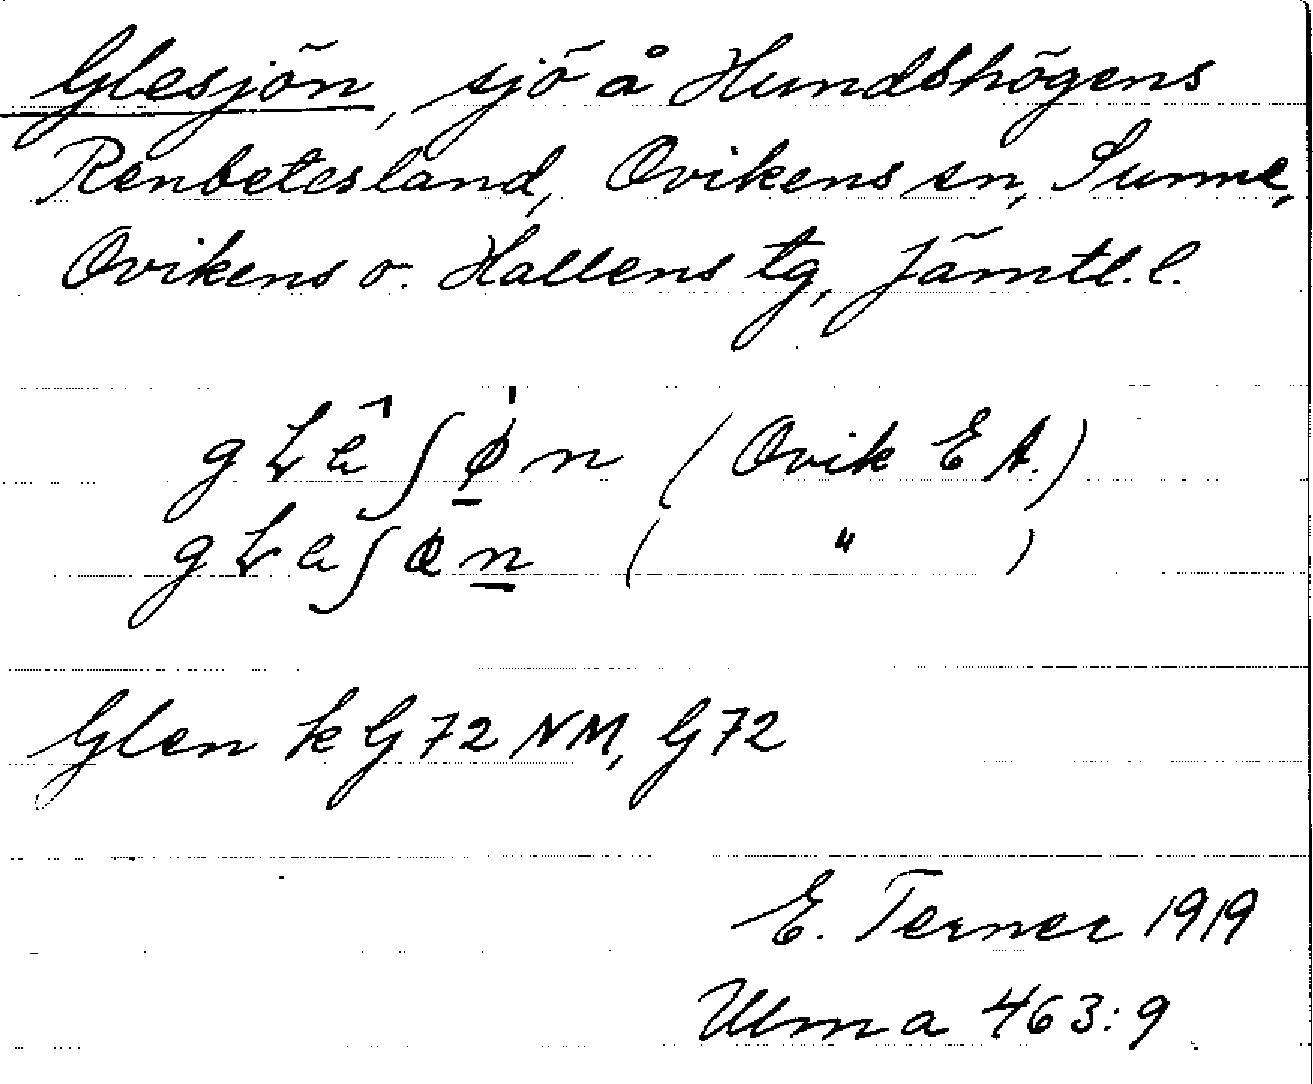 Glesjön, sjö å Hundshögens
Renbetesland, Ovikens sn, Sunne,
Ovikens o. Hallens tg, Jämtl. l.
(Ovik E A.)
( " )
Glen k G 72 NM, G 72
E. Terner 1919
Ulma 463:9